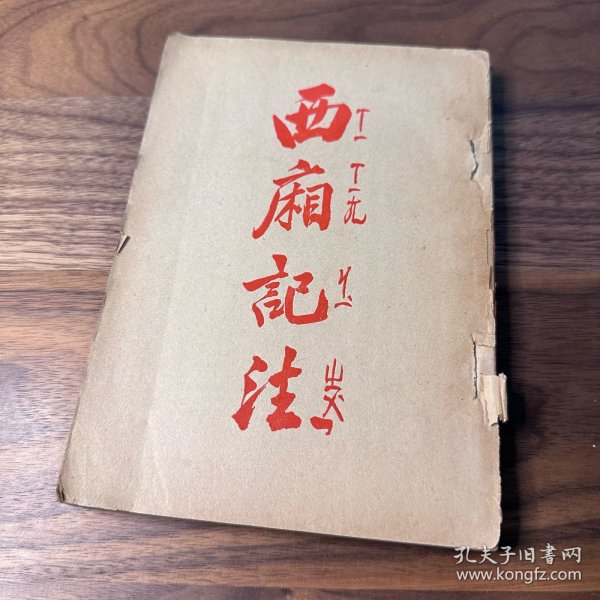 西廂記注
ㄒㄧ ㄒㄧㄤ ㄐㄧˋ
孔夫子旧書网
www.kongfz.com